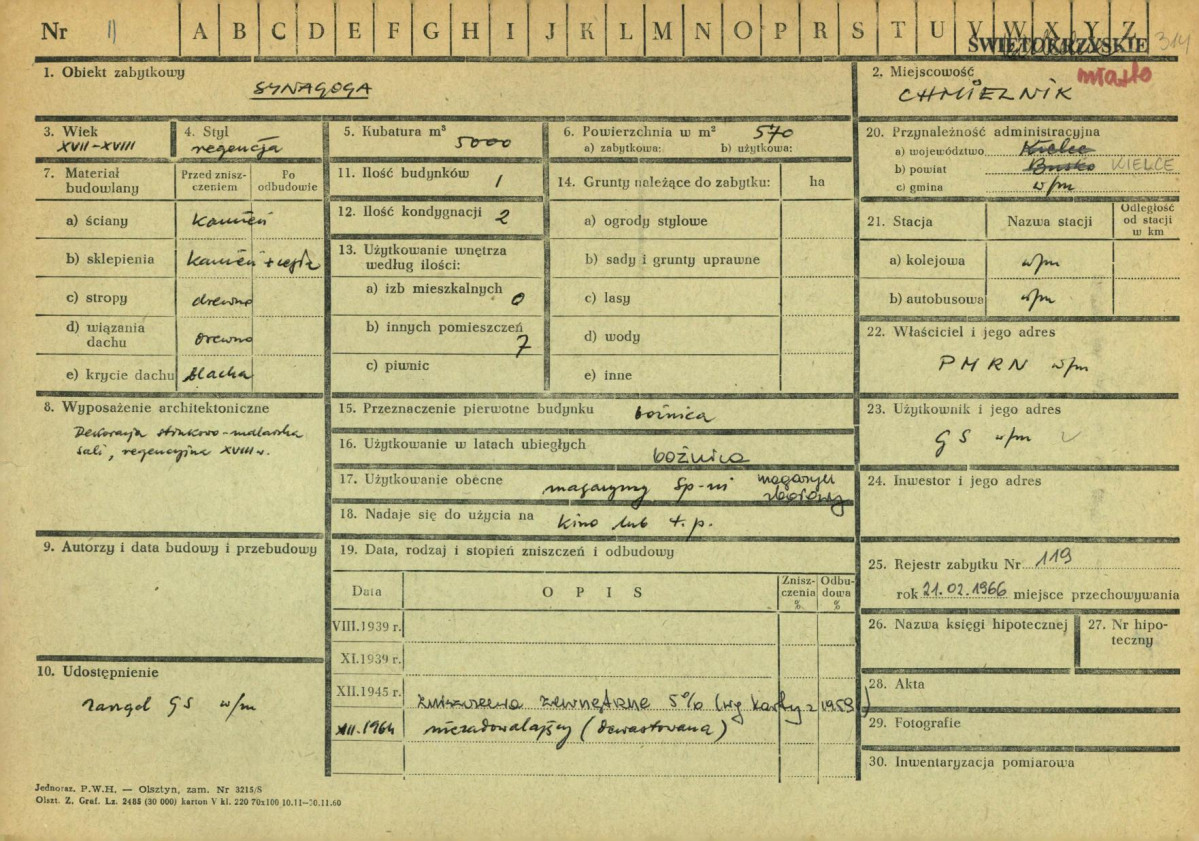 Nr 11 A B C D E F G H I J K L M N O P R S T U V W X Y Z
ŚWIĘTOKRZYSKIE 314
1. Obiekt zabytkowy
SYNAGOGA
2. Miejscowość miasto
CHMIELNIK
3. Wiek
XVII-XVIII
4. Styl
regencja
5. Kubatura m³ 5000
6. Powierzchnia w m² 570
a) zabytkowa: b) użytkowa:
7. Materiał budowlany
Przed zniszczeniem
Po odbudowie
a) ściany kamień
b) sklepienia kamień + cegła
c) stropy drewno
d) wiązania dachu drewno
e) krycie dachu blacha
8. Wyposażenie architektoniczne
Dekoracja stiukowo-malarska
sali, regencyjna XVIII w.
9. Autorzy i data budowy i przebudowy
10. Udostępnienie
zarząd GS w/m
11. Ilość budynków 1
12. Ilość kondygnacji 2
13. Użytkowanie wnętrza
według ilości:
a) izb mieszkalnych 0
b) innych pomieszczeń 7
c) piwnic
14. Grunty należące do zabytku: ha
a) ogrody stylowe
b) sady i grunty uprawne
c) lasy
d) wody
e) inne
15. Przeznaczenie pierwotne budynku bożnica
16. Użytkowanie w latach ubiegłych bożnica
17. Użytkowanie obecne magazyny Sp-ni magazyn zbożowy
18. Nadaje się do użycia na kino lub t.p.
19. Data, rodzaj i stopień zniszczeń i odbudowy
Data
O P I S
Zniszczenia %
Odbudowa %
VIII.1939 r.
XI.1939 r.
XII.1945 r. zniszczenia zewnętrzne 5% (wg karty z 1959)
XII.1964 niezadowalający (dewastowana)
20. Przynależność administracyjna
a) województwo Kielce
b) powiat Busko KIELCE
c) gmina w/m
21. Stacja
Nazwa stacji
Odległość od stacji w km
a) kolejowa w/m
b) autobusowa w/m
22. Właściciel i jego adres
PMRN w/m
23. Użytkownik i jego adres
GS w/m
24. Inwestor i jego adres
25. Rejestr zabytku Nr 119
rok 21.02.1966 miejsce przechowywania
26. Nazwa księgi hipotecznej
27. Nr hipoteczny
28. Akta
29. Fotografie
30. Inwentaryzacja pomiarowa
Jednoraz. P.W.H. — Olsztyn, zam. Nr 3215/S
Olszt. Z. Graf. Lz. 2485 (30 000) karton V kl. 220 70x100 10.11—30.11.60